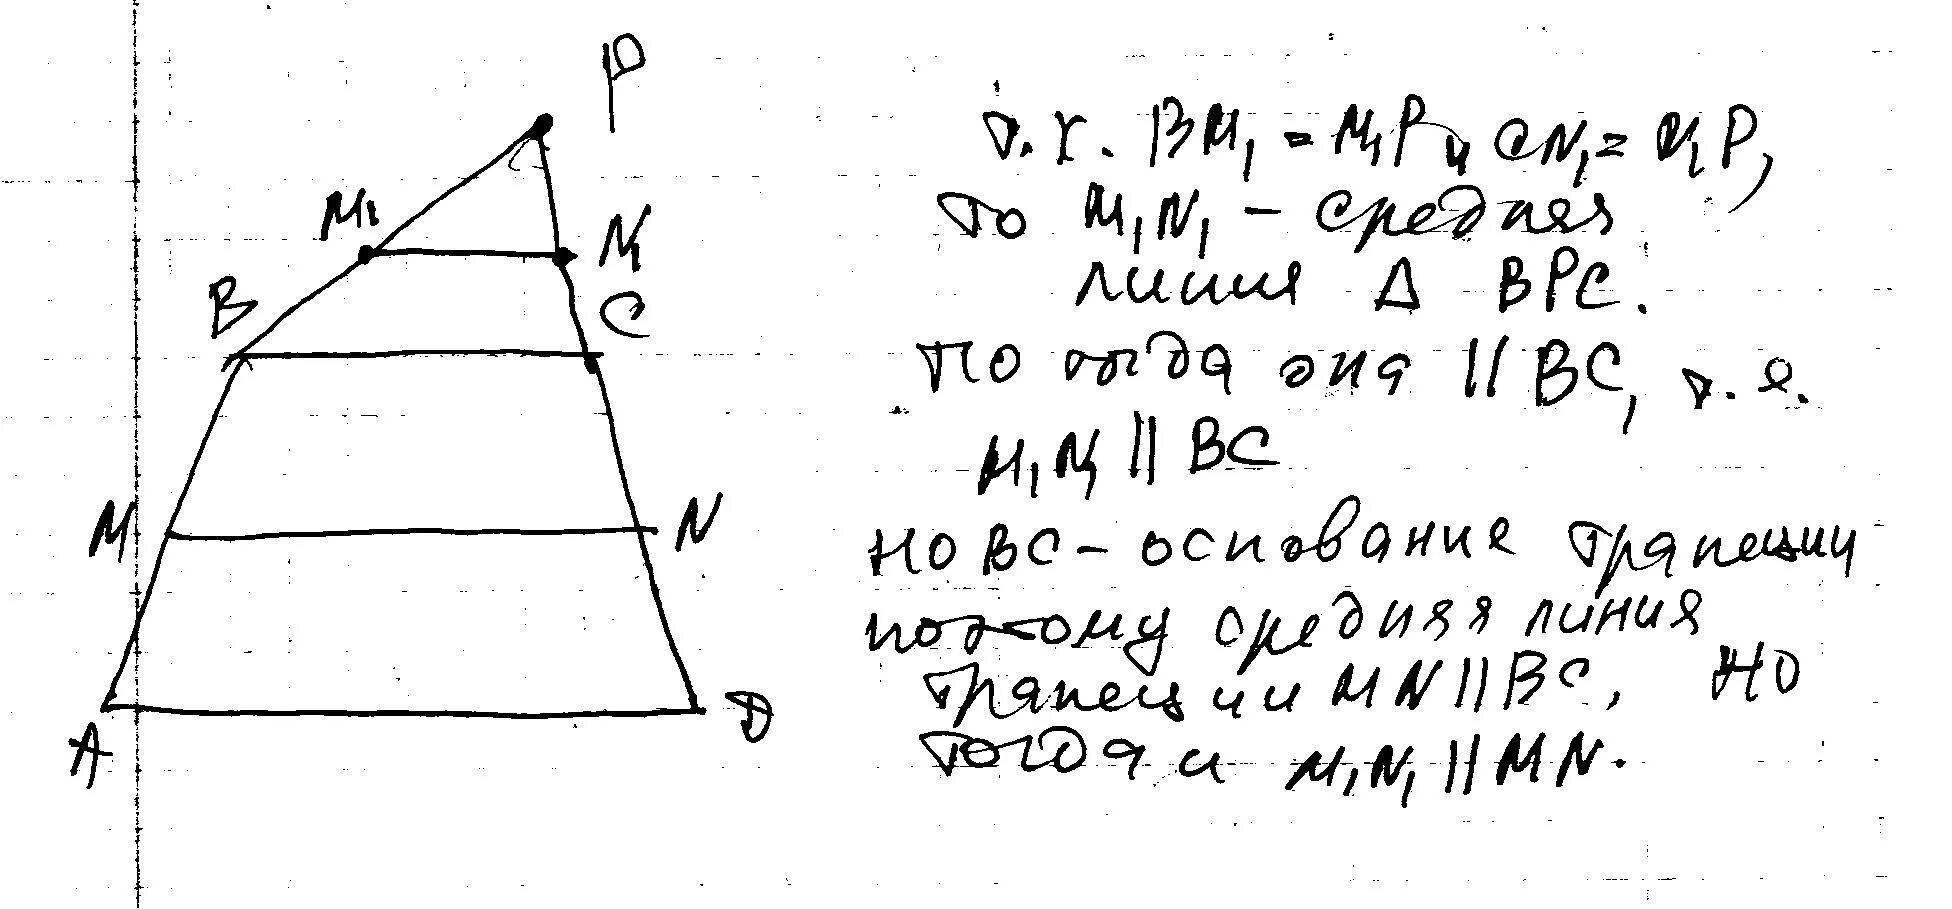 P
M₁
N₁
B
C
M
N
A
D
т.к. BM₁ = M₁P и CN₁ = N₁P,
то M₁N₁ – средняя
линия Δ BPC.
Но тогда она || BC, т.е.
M₁N₁ || BC
но BC – основание трапеции
поэтому средняя линия
трапеции MN || BC, но
тогда и M₁N₁ || MN.